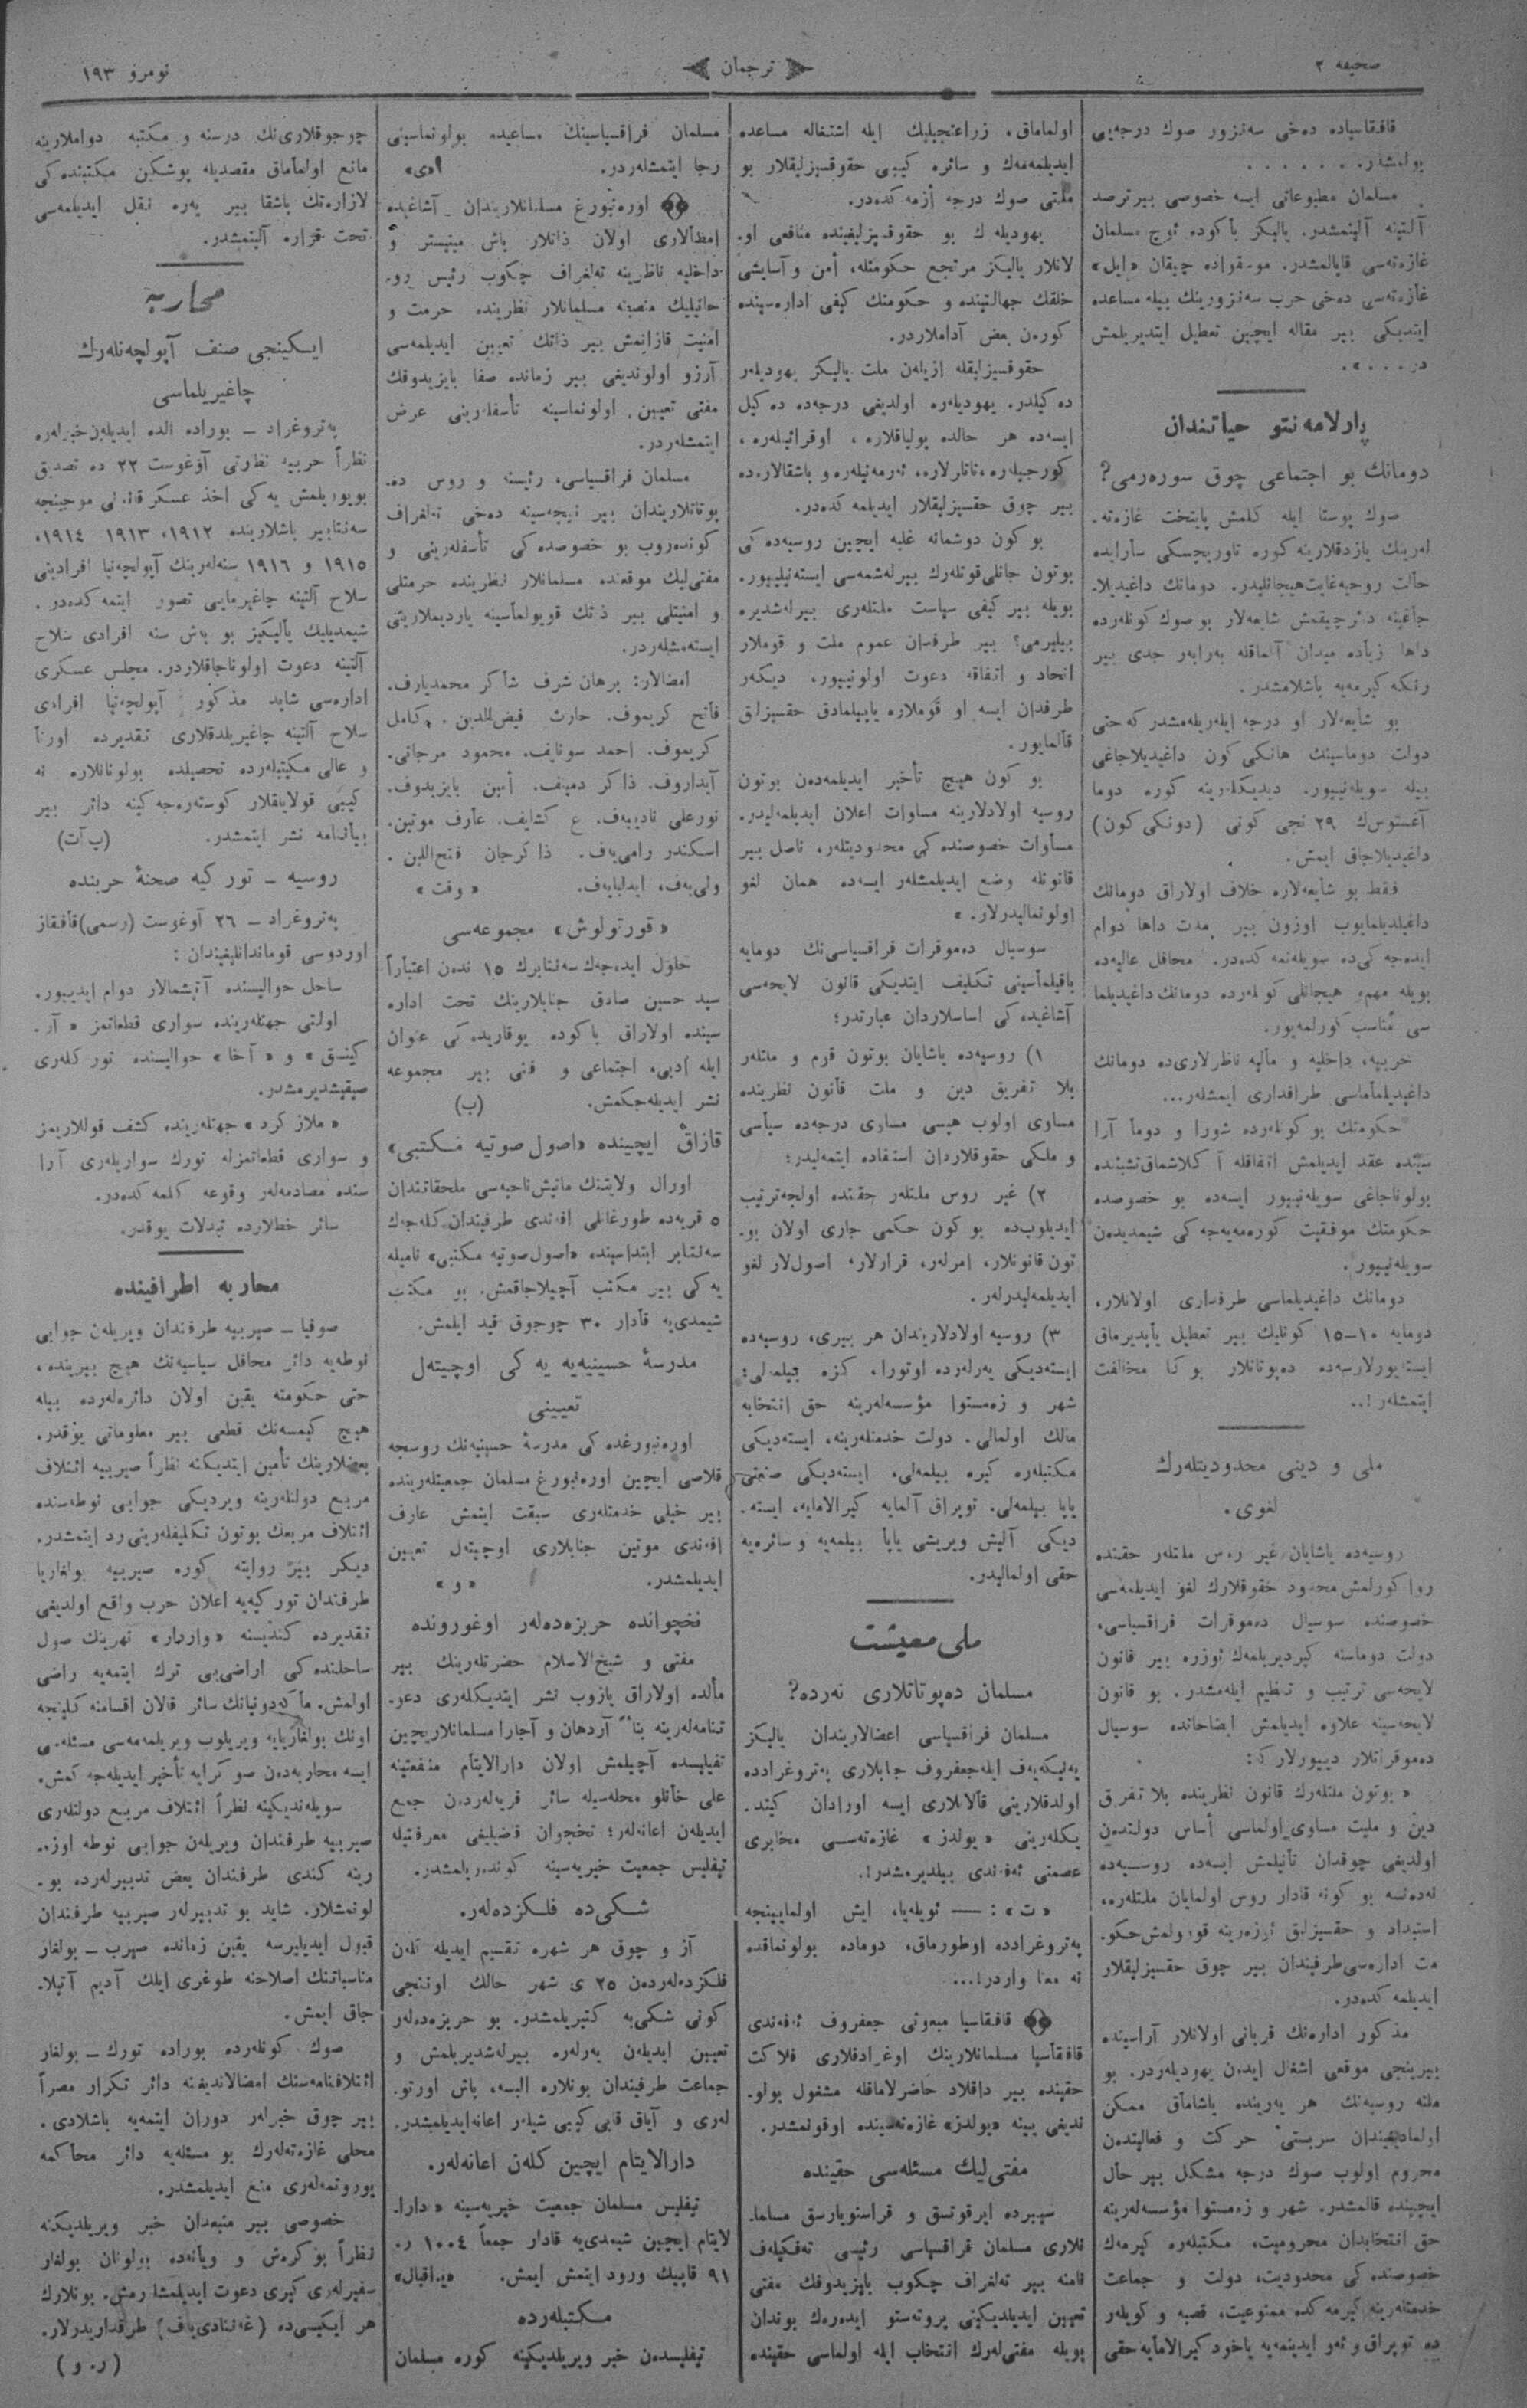 صحیفه ۲
ترجمان
نومرو ۱۹۳
قافقاسیاده ده‌خی سه‌نزور صوك درجه‌یی
بولمشدر. . . . . . .
مسلمان مطبوعاتی ایسه خصوصی بیر ترصد
آلتینه آلینمشدر. یالیکز باکوده ئوچ مسلمان
غازه‌ته‌سی قاپالمشدر. موسقواده چیقان «ایل»
غازه‌ته‌سی ده‌خی حرب سه‌نزورینك بیله مساعده
ایتدیکی بیر مقاله ایچین تعطیل ایتدیریلمش
در. . . .
پارلامه‌نتو حیاتندان
دومانك بو اجتماعی چوق سوره‌رمی؟
صوك پوستا ایله کلمش پایتخت غازه‌ته‌ـ
له‌رینك یازدقلارینه کوره تاوریچسکی سارایده
حالت روحیه غایت هیجانلیدر. دومانك داغیدیلاـ
جاغینه دائر چیقمش شایعه‌لار بو صوك کونله‌رده
داها زیاده میدان آلماقله به‌رابه‌ر جدی بیر
رنکه کیرمه‌یه باشلامشدر.
بو شایعه‌لار او درجه ایله‌ریله‌مشدر که حتی
دولت دوماسینك هانکی کون داغیدیلاجاغی
بیله سویله‌نییور. دیدیکله‌رینه کوره دوما
آغستوس‌ك ۲۹ نجی کونی (دونکی کون)
داغیدیلاجاق ایمش.
فقط بو شایعه‌لاره خلاف اولاراق دومانك
داغیلدیلمایوب اوزون بیر مدت داها دوام
ایده‌جه‌کی‌ده سویله‌نمه‌کده‌در. محافل عالیه‌ده
بویله مهم، هیجانلی کونله‌رده دومانك داغیدیلما
سی مناسب کورلمه‌یور.
حربیه، داخلیه و مالیه ناظرلاری‌ده دومانك
داغیدیلماماسی طرافداری ایمشله‌ر...
حکومتك بو کونله‌رده شورا و دوما آرا
سینده عقد ایدیلمش اتفاقله آکلاشماق تشبثنده
بولوناجاغی سویله‌نییور ایسه‌ده بو خصوصده
حکومتك موفقیت کوره‌مه‌یه‌جه‌کی شیمدیده‌ن
سویله‌نییور.
دومانك داغیدیلماسی طرفداری اولانلار،
دومایه ۱۰—۱۵ کونلیك بیر تعطیل یاپدیرماق
ایسته‌یورلارسه‌ده ده‌پوتاتلار بوکا مخالفت
ایتمشله‌ر!..
ملی و دینی محدودیتله‌رك
لغوی.
روسیه‌ده یاشایان غیر روس ملتله‌ر حقنده
روا کورلمش محدود حقوقلارك لغو ایدیلمه‌سی
خصوصنده سوسیال ده‌موقرات فراقسیاسی،
دولت دوماسنه کیردیریلمه‌ك ئوزره بیر قانون
لایحه‌سی ترتیب و تنظیم ایله‌مشدر. بو قانون
لایحه‌سینه علاوه ایدیلمش ایضاحاتده سوسیال
ده‌موقراتلار دییورلار که:
«بوتون ملتله‌رك قانون نظرینده بلا تفریق
دین و ملیت مساوی اولماسی أساس دولتدن
اولدیغی چوقدان تأنیلمش ایسه‌ده روسیه‌ده
نه‌ده‌نسه بو کونه قادار روس اولمایان ملتله‌ره،
استبداد و حقسیزلیق ئوزه‌رینه قورولمش حکوـ
مت اداره‌سی طرفیندان بیر چوق حقسیزلیقلار
ایدیلمه کده‌در.
مذکور اداره‌نك قربانی اولانلار آراسینده
بیرینجی موقعی اشغال ایده‌ن یهودیله‌ردر. بو
ملته روسیه‌نك هر یه‌رینده یاشاماق ممکن
اولمادیغیندان سربستی حرکت و فعالیتدن
محروم اولوب صوك درجه مشکل بیر حال
ایچینده قالمشدر. شهر و زه‌مستوا مؤسسه‌له‌رینه
حق انتخابدان محرومیت، مکتبله‌ره کیرمه‌ك
خصوصنده‌کی محدودیت، دولت و جماعت
خدمتله‌رینه کیرمه کده ممنوعیت، قصبه و کویله‌ر
ده توپراق و ئه‌و ایدینمه‌یه یاخود کیرالامایه حقی
اولماماق، زراعتجیلیك ایله اشتغاله مساعده
ایدیلمه‌مه‌ك و سائره کیبی حقوقسیزلیقلار بو
ملتی صوك درجه أزمه کده‌در.
یهودیله‌ك بو حقوقسیزلیغینده منافعی اوـ
لانلار یالیکز مرتجع حکومتله، أمن و آسایشی
خلقك جهالتینده و حکومتك کیفی اداره‌سینده
کوره‌ن بعض آداملاردر.
حقوقسیزلیقله ازیله‌ن ملت یالیکز یهودیله‌ر
ده‌کیلدر. یهودیله‌ره اولدیغی درجه‌ده ده‌کیل
ایسه‌ده هر حالده پولیاقلاره، اوقرائیله‌ره،
کورجیله‌ره، تاتارلاره، ئه‌رمه‌نیله‌ره و باشقالاره‌ده
بیر چوق حقسیزلیقلار ایدیلمه کده‌در.
بو کون دوشمانه غلبه ایچین روسیه‌ده کی
بوتون جانلی قوتله‌رك بیرله‌شمه‌سی ایسته‌نیلییور.
بویله بیر کیفی سیاست ملتله‌ری بیرله‌شدیره
بیلیرمی؟ بیر طرفدان عموم ملت و قوملار
اتحاد و اتفاقه دعوت اولونییور، دیکه‌ر
طرفدان ایسه او قوملاره یاپیلمادق حقسیزلق
قالمایور.
بو کون هیچ تأخیر ایدیلمه‌ده‌ن بوتون
روسیه اولادلارینه مساوات اعلان ایدیلمه‌لیدر.
مساوات خصوصنده‌کی محدودیتله‌ر، ناصل بیر
قانونله وضع ایدیلمشله‌ر ایسه‌ده همان لغو
اولونمالیدرلار.»
سوسیال ده‌موقرات فراقسیاسی‌نك دومایه
یاقیلماسینی تکلیف ایتدیکی قانون لایحه‌سی
آشاغیده‌کی اساسلاردان عبارتدر:
۱) روسیه‌ده یاشایان بوتون قوم و ملتله‌ر
بلا تفریق دین و ملت قانون نظرینده
مساوی اولوب هپسی مساوی درجه‌ده سیاسی
و ملکی حقوقلاردان استفاده ایتمه‌لیدر؛
۲) غیر روس ملتله‌ر حقنده اولجه ترتیب
ایدیلوب‌ده بو کون حکمی جاری اولان بوـ
تون قانونلار، امرله‌ر، قرارلار، اصول‌لار لغو
ایدیلمه‌لیدرله‌ر.
۳) روسیه اولادلاریندان هر بیری، روسیه‌ده
ایسته‌دیکی یه‌رله‌رده اوتورا، کزه بیلمه‌لی؛
شهر و زه‌مستوا مؤسسه‌له‌رینه حق انتخابه
مالك اولمالی. دولت خدمتله‌رینه، ایسته‌دیکی
مکتبله‌ره کیره بیلمه‌لی، ایسته‌دیکی صنعتی
یاپا بیلمه‌لی. توپراق آلمایه کیرالامایه، ایسته‌ـ
دیکی آلیش ویریشی یاپا بیلمه‌یه و سائره‌یه
حقی اولمالیدر.
ملی معیشت
مسلمان ده‌پوتاتلاری نه‌رده؟
مسلمان فراقسیاسی اعضالاریندان یالیکز
یه‌نیکه‌یه‌ف ایله جعفروف جنابلاری په‌تروغرادده
اولدقلارینی قالانلاری ایسه اورادان کیتدـ
یکله‌رینی «یولدز» غازه‌ته‌سی مخابری
عصمتی ئه‌فه‌ندی بیلدیره‌مشدر!.
«ت»: — ئویله‌یا، ایش اولماییینجه
په‌تروغرادده اوطورماق، دوماده بولونماقده
نه معنا واردر!...
قافقاسیا مبعوثی جعفروف ئه‌فه‌ندی
قافقاسیا مسلمانلارینك اوغرادقلاری فلاکت
حقینده بیر داقلاد حاضرلاماقله مشغول بولوـ
ندیغی یینه «یولدز» غازه‌ته‌سینده اوقونمشدر.
مفتی‌لیك مسئله‌سی حقینده
سیبرده ایرقوتسق و قراسنویارسق مسلماـ
نلاری مسلمان فراقسیاسی رئیسی ته‌فکیله‌ف
نامنه بیر ته‌لغراف چکوب بایزیدوفك مفتی
تعیین ایدیلدیکینی پروته‌ستو ایده‌ره‌ك بوندان
بویله مفتی‌له‌رك انتخاب ایله اولماسی حقینده
مسلمان فراقسیاسینك مساعیده بولونماسینی
رجا ایتمشله‌ردر.
اوره‌نبورغ مسلمانلاریندان آشاغیده
إمظالاری اولان ذاتلار باش مینیستر و
داخلیه ناظرینه ته‌لغراف چکوب رئیس روـ
حانیلیك منصبنه مسلمانلار نظرینده حرمت و
امنیت قازانمش بیر ذاتك تعیین ایدیلمه‌سی
آرزو اولوندیغی بیر زمانده صفا بایزیدوفك
مفتی تعیین اولونماسینه تأسفله‌رینی عرض
ایتمشله‌ردر.
مسلمان فراقسیاسی، رئیسنه و روس ده‌ـ
پوتاتلاریندان بیر نیجه‌سینه ده‌خی ته‌لغراف
کونده‌روب بو خصوصده‌کی تأسفله‌رینی و
مفتی‌لیك موقعنده مسلمانلار نظرینده حرمتلی
و امنیتلی بیر ذاتك قویولماسینه یاردیملارینی
ایسته‌مشله‌ردر.
امضالار: برهان شرف شاکر محمدیارف.
فاتح کریموف. حارث فیض‌الدین. کامل
کریموف. احمد سوتایف. محمود مرجانی.
آیداروف. ذاکر دمینف. أمین بایزیدوف.
نورعلی نادییه‌ف. ع کشایف. عارف موتین.
اسکندر رامی‌یه‌ف. ذاکرجان فتح‌الدین.
ولی‌یه‌ف، ایدلبایه‌ف. «وقت»
«قورتولوش» مجموعه‌سی
حلول ایده‌جه‌ك سه‌نتابرك ۱۵ نده‌ن اعتباراً
سید حسین صادق جنابلارینك تحت اداره
سینده اولاراق باکوده یوقاریده‌کی عنوان
ایله أدبی، اجتماعی و فنی بیر مجموعه
نشر ایدیله‌جکمش. (ب)
قازاق ایچینده «اصول صوتیه مکتبی»
اورال ولایتنك مانیش ناحیه‌سی ملحقاتندان
۵ قریه‌ده طورغانلی افه‌ندی طرفیندان کله‌جه‌ك
سه‌نتابر ابتداسینده، «اصول صوتیه مکتبی» نامیله
یه‌کی بیر مکتب آچیلاجاقمش. بو مکتب
شیمدی‌یه قادار ۳۰ چوجوق قید ایلمش.
مدرسهٔ حسینیه‌یه یه کی اوچیته‌ل
تعیینی
اوره‌نبورغده‌کی مدرسهٔ حسینیه‌نك روسجه
قلاصی ایچین اوره‌نبورغ مسلمان جمعیتله‌رینده
بیر خیلی خدمتله‌ری سبقت ایتمش عارف
افه‌ندی موتین جنابلاری اوچیته‌ل تعیین
ایدیلمشدر. «و»
نخچوانده حربزده‌له‌ر اوغورونده
مفتی و شیخ‌الاسلام حضرتله‌رینك بیر
مألده اولاراق یازوب نشر ایتدیکله‌ری دعوـ
تنامه‌له‌رینه بناءً آردهان و آجارا مسلمانلاریچین
تفلیسده آچیلمش اولان دارالایتام منفعتینه
علی خانلو محله‌سیله سائر قریه‌له‌رده‌ن جمع
ایدیله‌ن اعانه‌له‌ر؛ نخچوان قاضیلیغی معرفتیله
تیفلیس جمعیت خیریه‌سینه کونده‌ریلمشدر.
شکی‌ده فلکزده‌له‌ر.
آز و چوق هر شهره تقسیم ایدیله کله‌ن
فلکزده‌له‌رده‌ن ۲۵ ی شهر حالك اوننجی
کونی شکی‌یه کتیریلمشدر. بو حربزده‌له‌ر
تعیین ایدیله‌ن یه‌رله‌ره بیرله‌شدیریلمش و
جماعت طرفیندان بونلاره البسه، باش اورتوـ
له‌ری و آیاق قابی کیبی شیله‌ر اعانه ایدیلمشدر.
دارالایتام ایچین کله‌ن اعانه‌له‌ر.
تیفلیس مسلمان جمعیت خیریه‌سینه «داراـ
لایتام» ایچین شیمدی‌یه قادار جمعاً ۱۰۰٤ ر.
۹۱ قاپیك ورود ایتمش ایمش. «ی. اقبال»
مکتبله‌رده
تیفلیسده‌ن خبر ویریلدیکینه کوره مسلمان
چوجوقلاری‌نك درسنه و مکتبه دواملارینه
مانع اولماماق مقصدیله پوشکین مکتبنده‌کی
لازاره‌تك باشقا بیر یه‌ره نقل ایدیلمه‌سی
تحت قراره آلینمشدر.
محاربه
ایکینجی صنف آپولچه‌نله‌رك
چاغیریلماسی
په‌تروغراد — بوراده الده ایدیله‌ن خبرله‌ره
نظراً حربیه نظارتی آوغوست ۲۲ ده تصدیق
بویوریلمش یه کی اخذ عسکر قانونی موجبنجه
سه‌نتابیر باشلارینده ۱۹۱۲، ۱۹۱۳ ۱۹۱٤،
۱۹۱۵ و ۱۹۱٦ سنه‌له‌رینك آپولچه‌نیا افرادینی
سلاح آلتینه چاغیرمایی تصور ایتمه کده‌در.
شیمدیلیك یالیکیز بو به‌ش سنه افرادی سلاح
آلتینه دعوت اولوناجاقلاردر. مجلس عسکری
اداره‌سی شاید مذکور آپولچه‌نیا افرادی
سلاح آلتینه چاغیریلدقلاری تقدیرده اورتا
و عالی مکتبله‌رده تحصیلده بولونانلاره نه
کیبی قولایلقلار کوسته‌ره‌جه کینه دائر بیر
بیاننامه نشر ایتمشدر. (پ آت)
روسیه — تورکیه صحنهٔ حربنده
په‌تروغراد — ۲٦ آوغوست (رسمی) قافقاز
اوردوسی قوماندانلیغیندان:
ساحل حوالیسنده آتیشمالار دوام ایدییور.
اولتی جهتله‌رینده سواری قطعاتمز «آرـ
کینسق» و «آخا» حوالیسنده تورکله‌ری
صیقیشدیرمشدر.
«ملاز کرد» جهتله‌رینده کشف قوللاریمز
و سواری قطعاتمزله تورك سواریله‌ری آرا
سنده مصادمه‌له‌ر وقوعه کلمه کده‌در.
سائر خطلارده تبدلات یوقدر.
محاربه اطرافینده
صوفیا — صیربیه طرفندان ویریله‌ن جوابی
نوطه‌یه دائر محافل سیاسیه‌نك هیچ بیرینده،
حتی حکومته یقین اولان دائره‌له‌رده بیله
هیچ کیمسه‌نك قطعی بیر معلوماتی یوقدر.
بعضلارینك تأمین ایتدیکنه نظراً صیربیه ائتلاف
مربع دولتله‌رینه ویردیکی جوابی نوطه‌سنده
ائتلاف مربعك بوتون تکلیفله‌رینی رد ایتمشدر.
دیکر بیر روایته کوره صیربیه بولغاریا
طرفندان تورکیه‌یه اعلان حرب واقع اولدیغی
تقدیرده کندیسنه «واردار» نهرینك صول
ساحلنده‌کی اراضی‌یی ترك ایتمه‌یه راضی
اولمش. ماکه‌دونیانك سائر قالان اقسامنه کلینجه
اونك بولغاریایه ویریلوب ویریلمه‌مه‌سی مسئله‌سی
ایسه محاربه‌ده‌ن صوکرایه تأخیر ایدیله‌جه کمش.
سویله‌ندیکینه نظراً ائتلاف مربع دولتله‌ری
صیربیه طرفندان ویریله‌ن جوابی نوطه اوزه‌ـ
رینه کندی طرفندان بعض تدبیرله‌رده بوـ
لونمشلار. شاید بو تدبیرله‌ر صیربیه طرفندان
قبول ایدیلیرسه یقین زمانده صیرب — بولغار
مناسباتنك اصلاحنه طوغری ایلك آدیم آتیلاـ
جاق ایمش.
صوك کونله‌رده بوراده تورك — بولغار
ائتلافنامه‌سنك امضالاندیغنه دائر تکرار مصراً
بیر چوق خبرله‌ر دوران ایتمه‌یه باشلادی.
محلی غازه‌ته‌له‌رك بو مسئله‌یه دائر محاکمه
یوروتمه‌له‌ری منع ایدیلمشدر.
خصوصی بیر منبعدان خبر ویریلدیکنه
نظراً بوکره‌ش و ویانه‌ده بولونان بولغار
سفیرله‌ری کیری دعوت ایدیلمشله‌رمش. بونلارك
هر ایکیسی‌ده (غه‌ننادی‌یاف) طرفداریدرلار.
(ر. و)